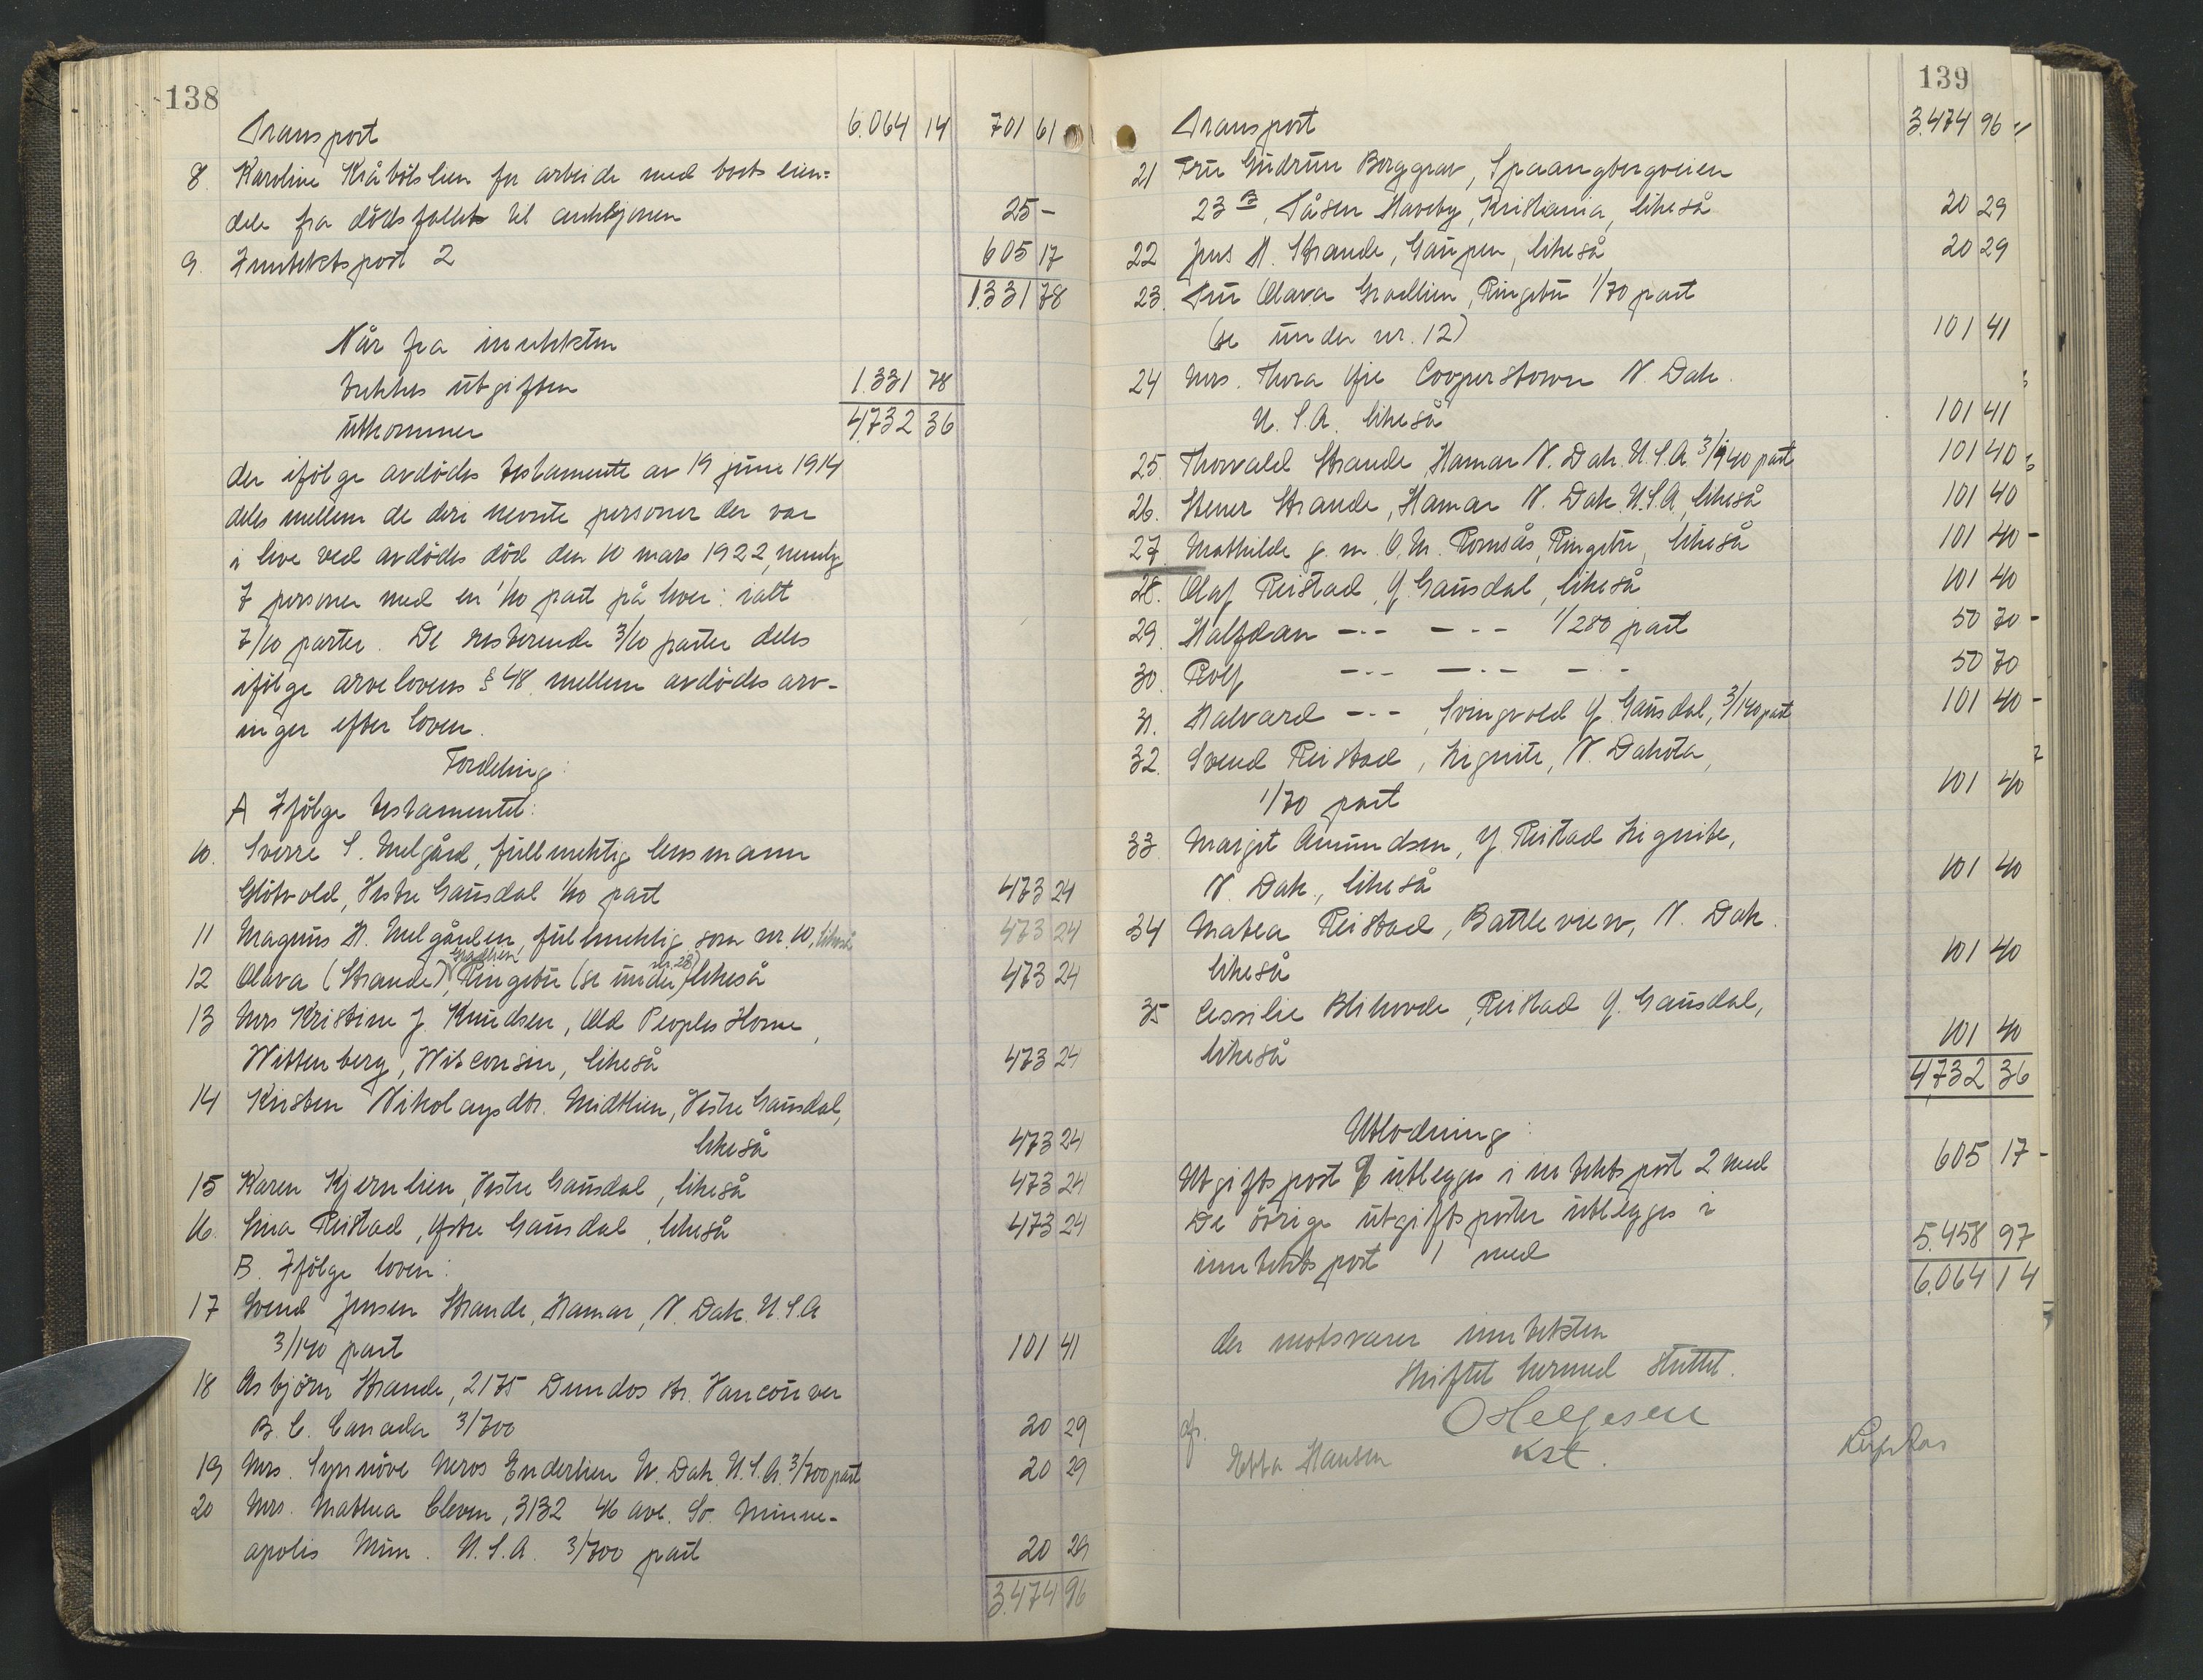 138
Transport 6.064 14 701 61
8. Karoline Kråbölslien for arbeide med boets eien=
dele fra dödsfallet til auktionen 25 -
9. Inntektspost 2 605 17
1.331 78
Når fra inntekten
trekkes utgiften 1.331 78
utkommer 4732 36
der ifölge avdödes testamente av 19 juni 1914
deles mellem de deri nevnte personer der var
i live ved avdödes död den 10 mars 1922, nemlig
7 personer med en 1/10 part på hver: ialt
7/10 parter. De resterende 3/10 parter deles
ifölge arvelovens § 48 mellem avdödes arv-
inger efter loven.
Fordeling:
A Ifölge testamentet:
10. Sverre S. Melgård, fullmektig lensmann
Glötvold, Vestre Gausdal 1/10 part 473 24
11 Magnus H. Melgården, fullmektig som nr. 10, likeså 473 24
12 Olava (Strande) Graellien, Ringebu (se under nr. 23) likeså 473 24
13 Mrs Kristine J. Knudsen, Old Peoples Home,
Wittenberg, Wisconsin, likeså 473 24
14 Kristen Nikolaysdtr. Midtlien, Vestre Gausdal,
likeså 473 24
15 Karen Kjernlien, Vestre Gausdal, likeså 473 24
16. Lina Reistad, Östre Gausdal, likeså 473 24
B. Ifölge loven:
17 Svend Jensen Strande, Hamar, N. Dak. U.S.A
3/140 part 101 41
18 Asbjörn Strande, 2175 Dundas str. Vancouver
B. C. Canada 3/700 20 29
19 Mrs. Synnöve Neros Enderlien N. Dak. U.S.A. 3/700 part 20 29
20 Mrs. Mathea Cleven, 3132 46 ave. So. Minne-
apolis Minn. U.S.A. 3/700 part 20 29
3.474 96
139
Transport 3.474 96
21 Fru Gudrun Borggrav, Spaangbergveien
23 B, Tåsen Haveby, Kristiania, likeså 20 29
22 Jens H. Strande, Gaupen, likeså 20 29
23. Fru Olava Graellien, Ringebu 1/70 part
(se under nr. 12) 101 41
24 Mrs. Thora Cooperstown N. Dak.
U.S.A. likeså 101 41
25 Thorvald Strande, Hamar N. Dak. U.S.A. 3/140 part 101 40
26. Stener Strande, Hamar N. Dak. U.S.A. likeså 101 40
27. Mathilde g. m. O.M. Romsås, Ringebu, likeså 101 40 -
28. Olaf Reistad, Ö. Gausdal, likeså 101 40
29. Halfdan -"- -"- 1/280 part 50 70 -
30. Rolf -"- -"- -"- 50 70
31. Halvard -"-, Svingvold Ö. Gausdal, 3/140 part 101 40 -
32. Svend Reistad, Lignite, N. Dakota,
1/70 part 101 40
33 Margit Amundsen, f. Reistad Lignite,
N. Dak., likeså 101 40
34 Matea Reistad, Battleview, N. Dak.
likeså 101 40
35 Cessilie Blihovde, Reistad Ö. Gausdal,
likeså 101 40
4,732 36
Utlodning:
Utgiftspost 9 utlegges i inntektspost 2 med 605 17 -
De övrige utgiftsposter utlegges i
inntektspost 1 med 5.458 97
6.064 14
der motsvarer inntekten
Skiftet hermed sluttet.
O Helgesen
Ebba Hansen kst.